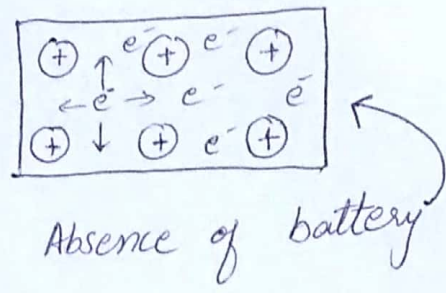 + e⁻ + e⁻ +
e⁻ e⁻ e⁻
+ + e⁻ +
Absence of battery